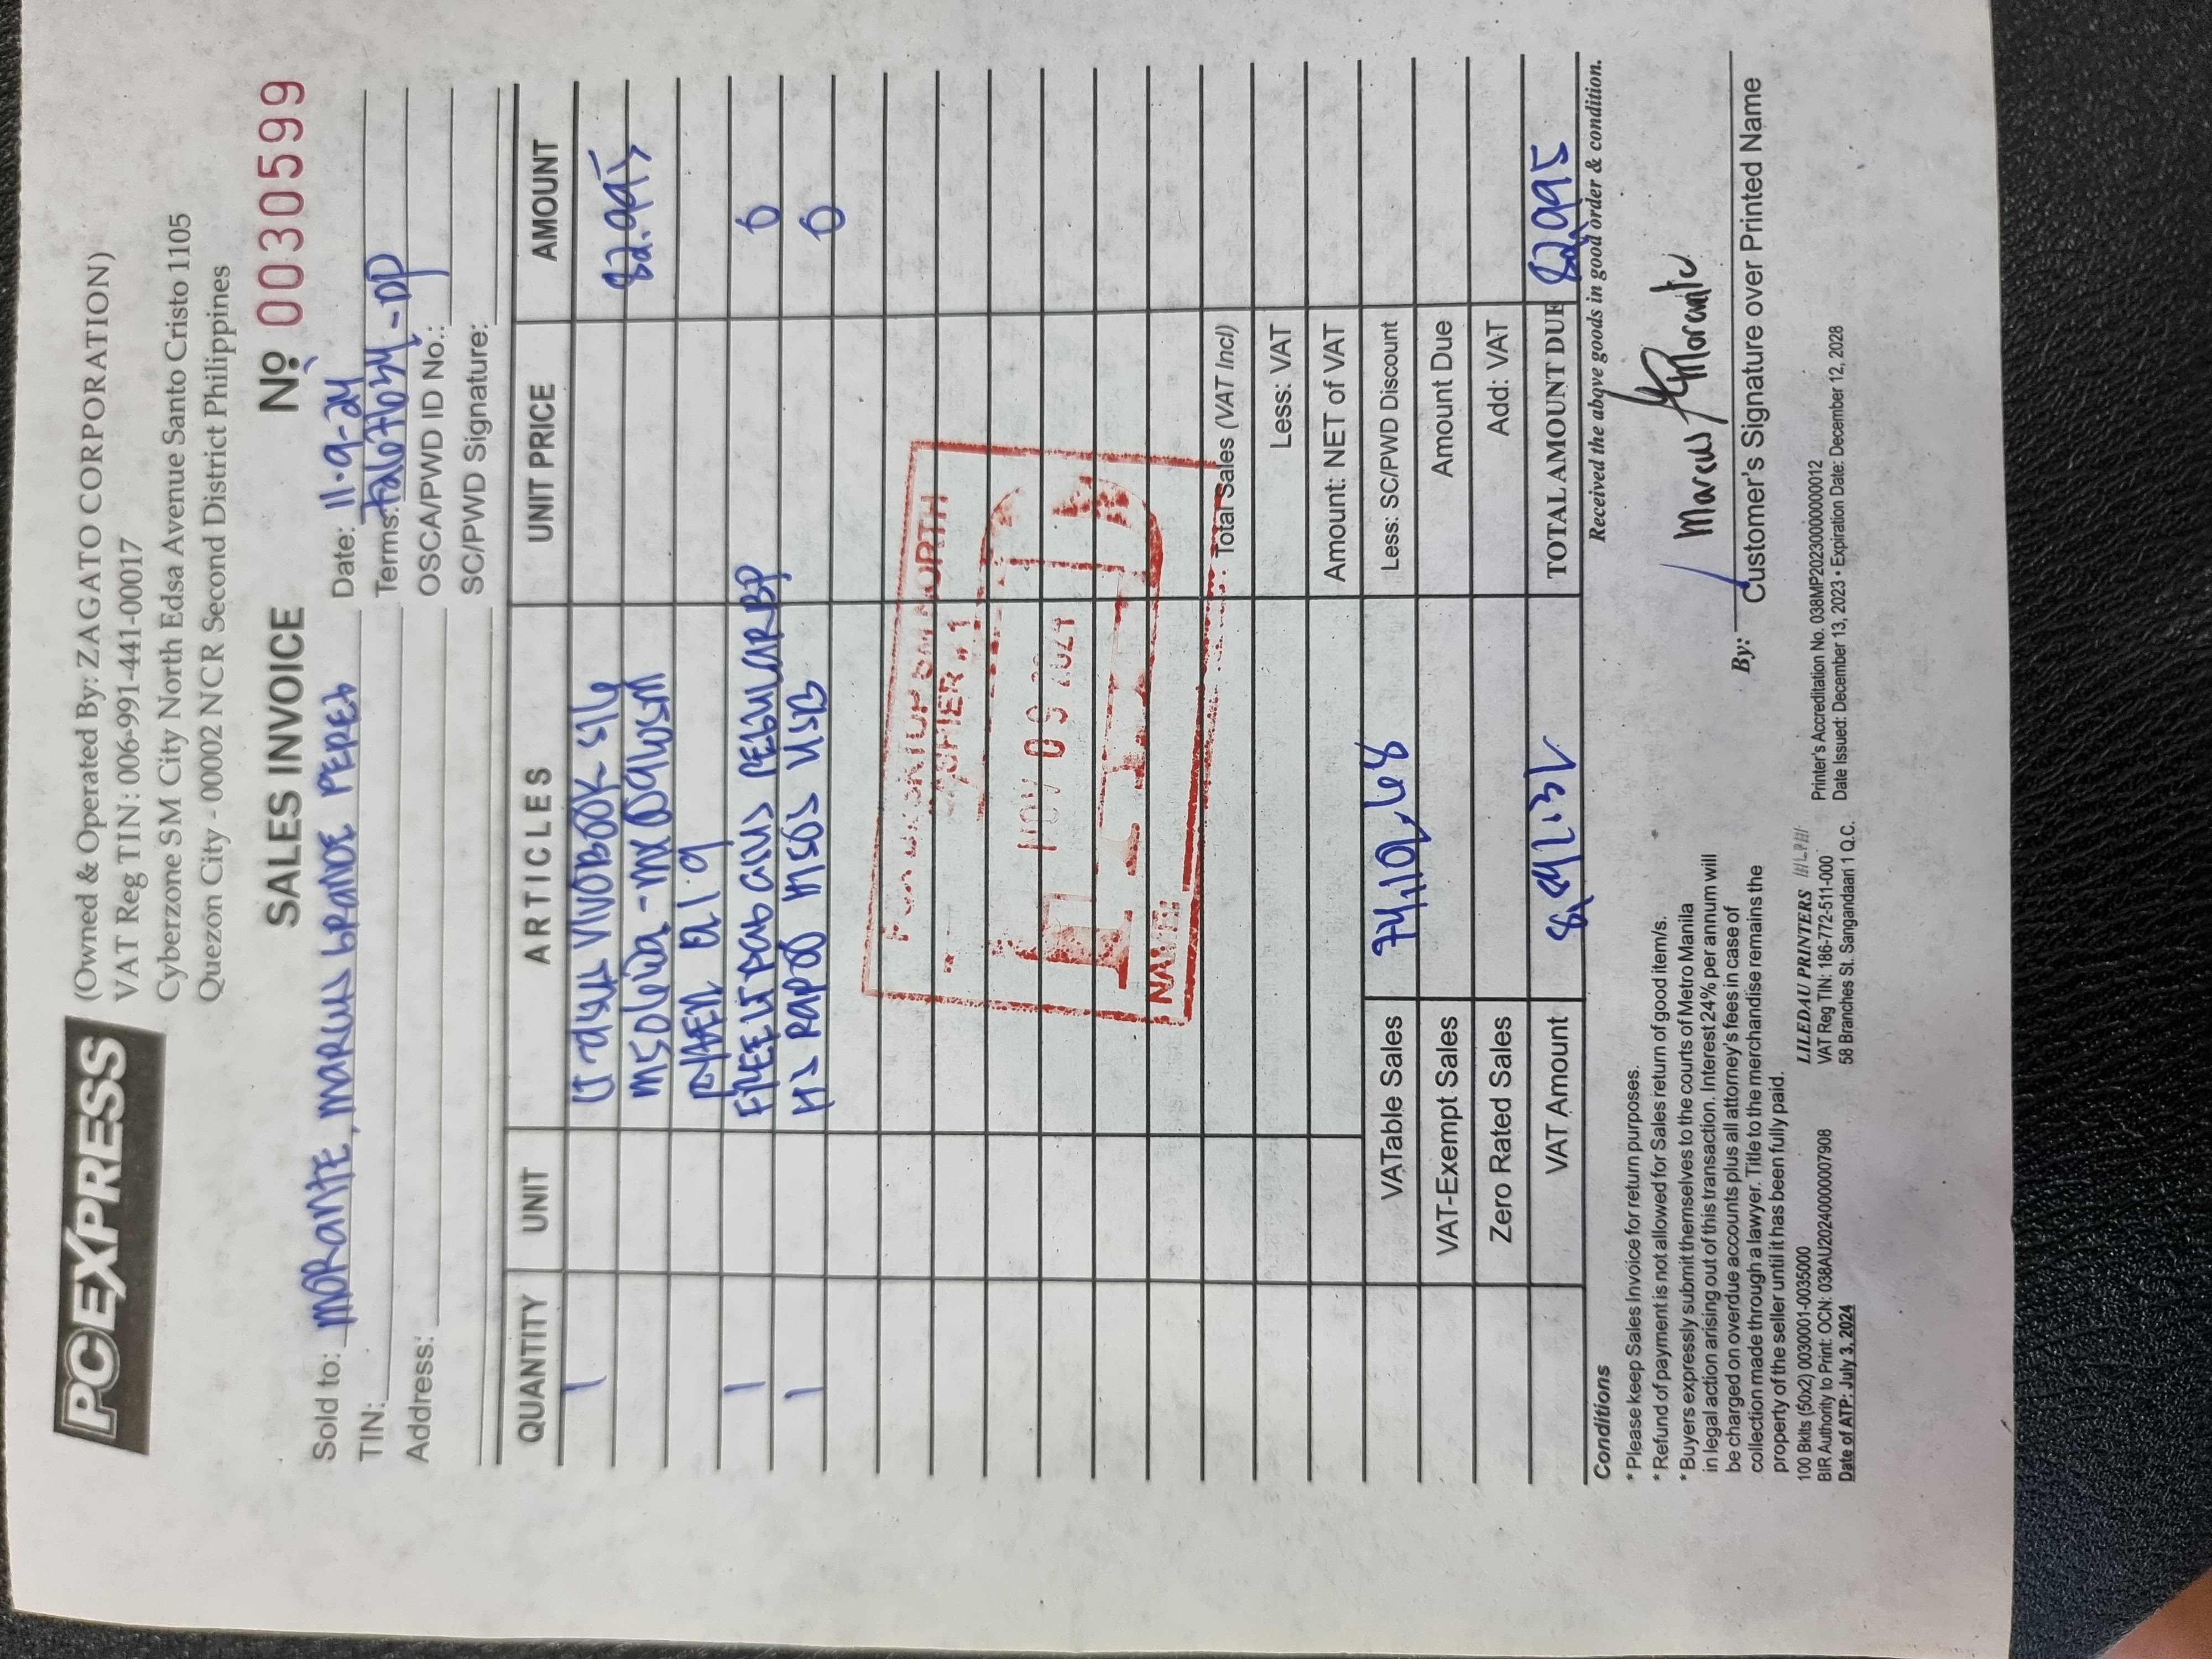 PCEXPRESS
(Owned & Operated By: ZAGATO CORPORATION)
VAT Reg TIN: 006-991-441-00017
Cyberzone SM City North Edsa Avenue Santo Cristo 1105
Quezon City - 00002 NCR Second District Philippines
SALES INVOICE
Nº 0030599
Sold to: MORANTE, MARCUS GRANDE PEREZ
Date: 11-9-24
TIN:
Terms: 7267634-DP
Address:
OSCA/PWD ID No.:
SC/PWD Signature:
QUANTITY UNIT ARTICLES UNIT PRICE AMOUNT
1 LT ASUS VIVOBOOK S16 82,995
M5606WA-MX009WSM
RYZEN AI 9
1 FREE LT BAG ASUS REGULAR BP 0
1 HS RAPOO H505 USB 0
DESKTOP SM NORTH
CASHIER # 1
PAID
NOV 09 2024
NAME:
Total Sales (VAT Incl)
Less: VAT
Amount: NET of VAT
VATable Sales 74,102.68 Less: SC/PWD Discount
VAT-Exempt Sales Amount Due
Zero Rated Sales Add: VAT
VAT Amount 8,892.32 TOTAL AMOUNT DUE 82,995
Conditions
Received the above goods in good order & condition.
* Please keep Sales Invoice for return purposes.
* Refund of payment is not allowed for Sales return of good item/s.
* Buyers expressly submit themselves to the courts of Metro Manila
in legal action arising out of this transaction. Interest 24% per annum will
be charged on overdue accounts plus all attorney's fees in case of
collection made through a lawyer. Title to the merchandise remains the
property of the seller until it has been fully paid.
Marcus Morante
By:
Customer's Signature over Printed Name
100 Bklts (50x2) 0030001-0035000
BIR Authority to Print: OCN: 038AU20240000007908
Date of ATP: July 3, 2024
LILEDAU PRINTERS
VAT Reg TIN: 186-772-511-000
58 Branches St. Sangandaan 1 Q.C.
Printer's Accreditation No. 038MP20230000000012
Date Issued: December 13, 2023 • Expiration Date: December 12, 2028